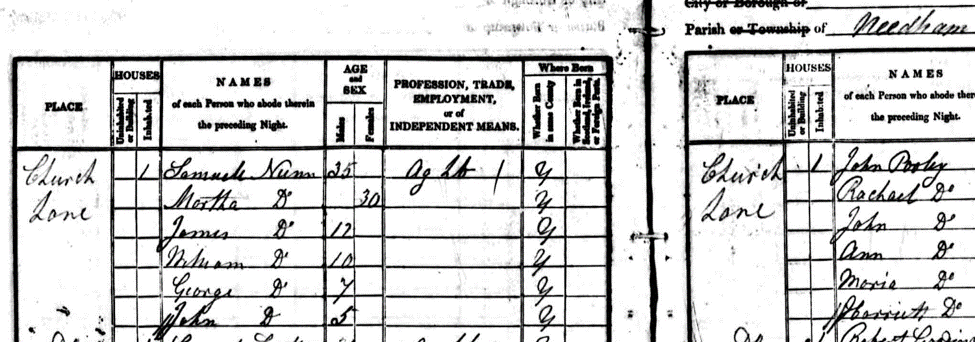 City or Borough of
Parish or Township of Needham
PLACE
HOUSES
Uninhabited or Building
Inhabited
NAMES
of each Person who abode therein
the preceding Night.
AGE and SEX
Males
Females
PROFESSION, TRADE,
EMPLOYMENT,
or of
INDEPENDENT MEANS.
Where Born
Whether Born in same County
Whether Born in Scotland, Ireland, or Foreign Parts.
Church 1 Samuel Nunn 35 Ag Lb Y
Lane Martha Do 30 Y
James Do 12 Y
William Do 10 Y
George Do 7 Y
John D 5 Y
PLACE
HOUSES
Uninhabited or Building
Inhabited
NAMES
of each Person who abode
the preceding Night.
Church 1 John Pooley
Lane Rachael Do
John Do
Ann Do
Maria Do
Harriett Do
Robert